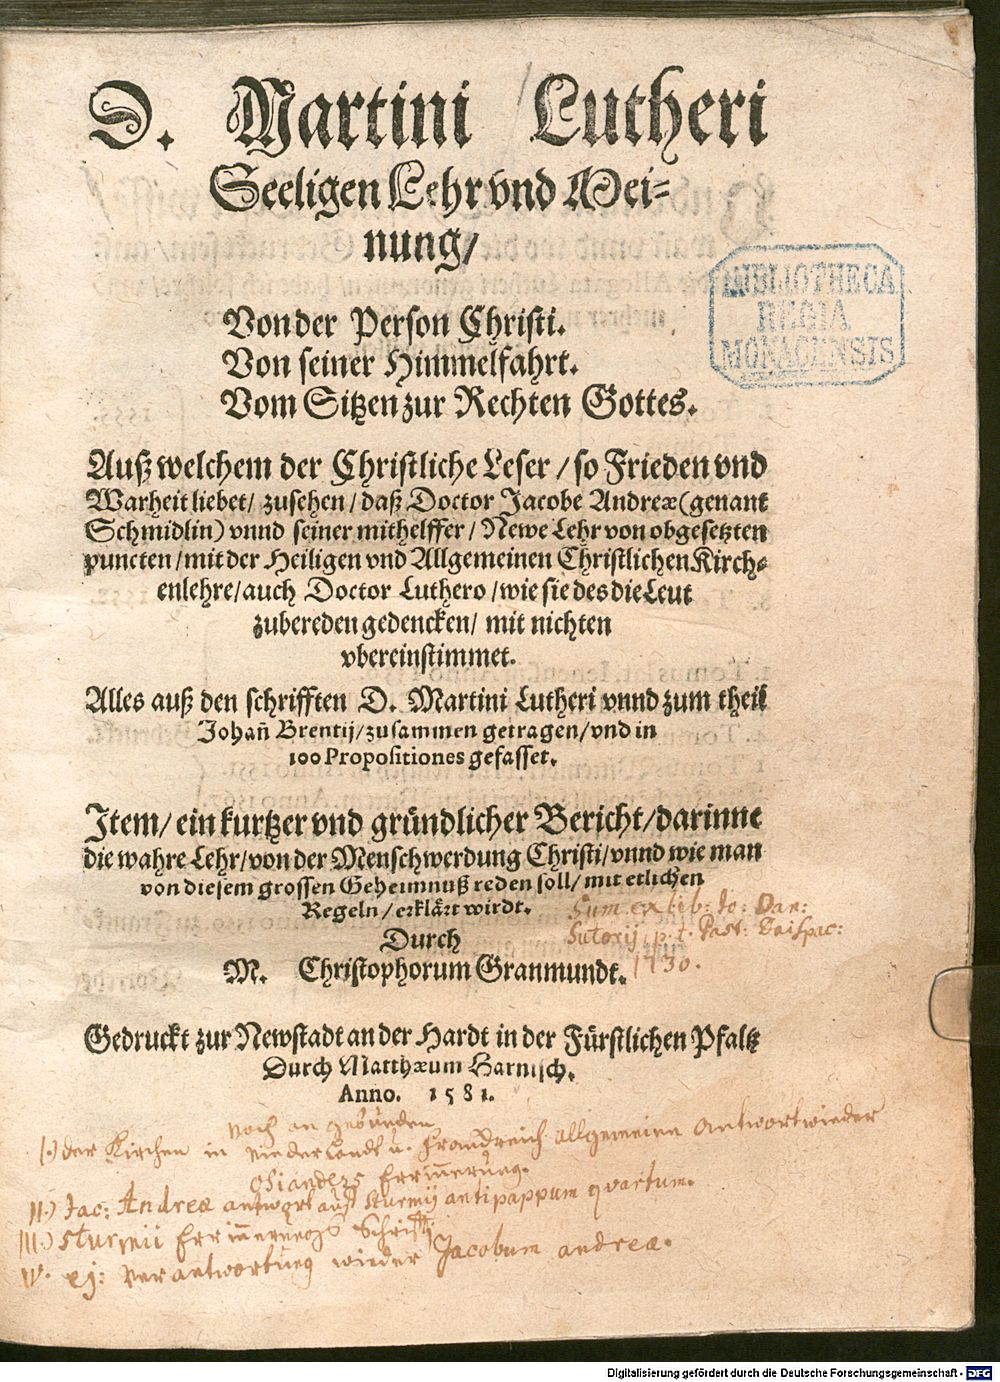 D. Martini Lutheri
Seeligen Lehr vnd Mei-
nung/
BIBLIOTHECA
REGIA
MONACENSIS
Von der Person Christi.
Von seiner Himmelfahrt.
Vom Sitzen zur Rechten Gottes.
Auß welchem der Christliche Leser / so Frieden vnd
Warheit liebet / zusehen / daß Doctor Jacobe Andreæ (genant
Schmidlin) vnnd seiner mithelffer / Newe Lehr von obgesetzten
puncten / mit der Heiligen vnd Allgemeinen Christlichen Kirch-
enlehre / auch Doctor Luthero / wie sie des die Leut
zubereden gedencken / mit nichten
vbereinstimmet.
Alles auß den schrifften D. Martini Lutheri vnnd zum theil
Johañ Brentij / zusammen getragen / vnd in
100 Propositiones gefasset.
Item / ein kurtzer vnd gründlicher Bericht / darinne
die wahre Lehr / von der Menschwerdung Christi / vnnd wie man
von diesem grossen Geheimnuß reden soll / mit etlichen
Regeln / erklärt wirdt.
Sum ex lib: Jo: Dan:
Sutorij p. t. Past:
1730.
Durch
M. Christophorum Granmundt.
Gedruckt zur Newstadt an der Hardt in der Fürstlichen Pfaltz
Durch Matthæum Harnisch.
Anno. 1581.
Noch an gebunden
I.) der Kirchen in Niederlandt u. Franckreich allgemeine Antwort wieder
Osianders Erinnerung.
II.) Jac: Andreæ antwort auf Sturmij antipappum quartum.
III.) Sturmii
IV. ej: Verantwortung wieder Jacobum andreæ.